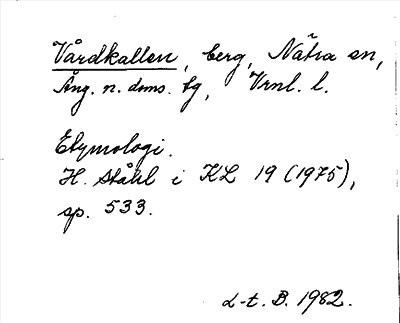 Vårdkallen, berg, Nätra sn,
Ång. n. dms. tg, Vrnl. l.
Etymologi.
H. Ståhl i KL 19 (1975),
sp. 533.
L-t. B. 1982.